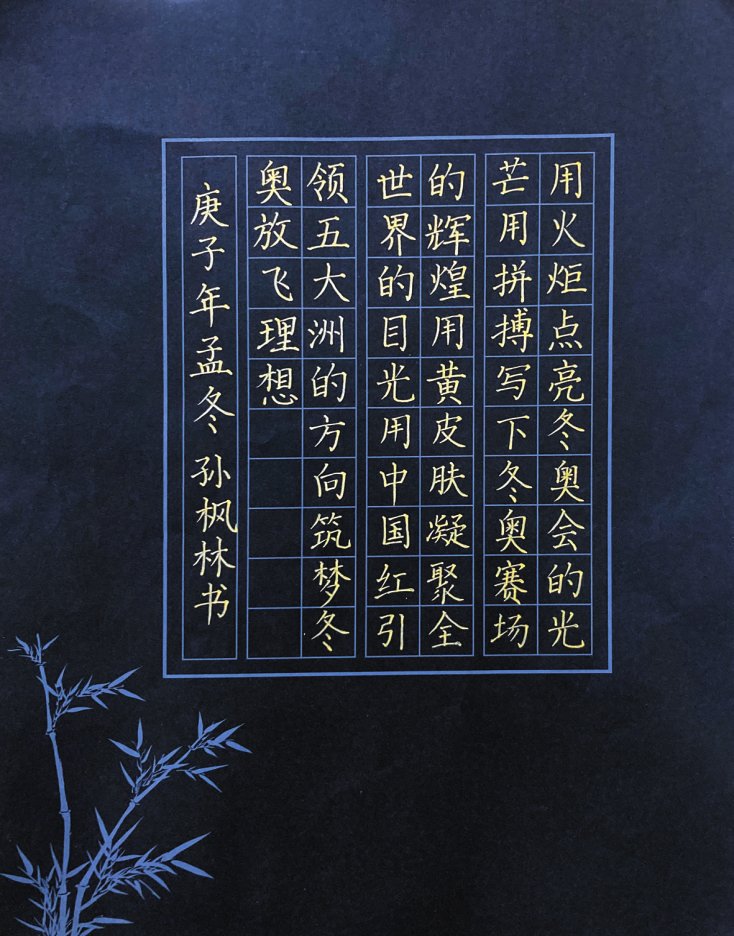 用火炬点亮冬奥会的光
芒用拼搏写下冬奥赛场
的辉煌用黄皮肤凝聚全
世界的目光用中国红引
领五大洲的方向筑梦冬
奥放飞理想
庚子年孟冬 孙枫林书